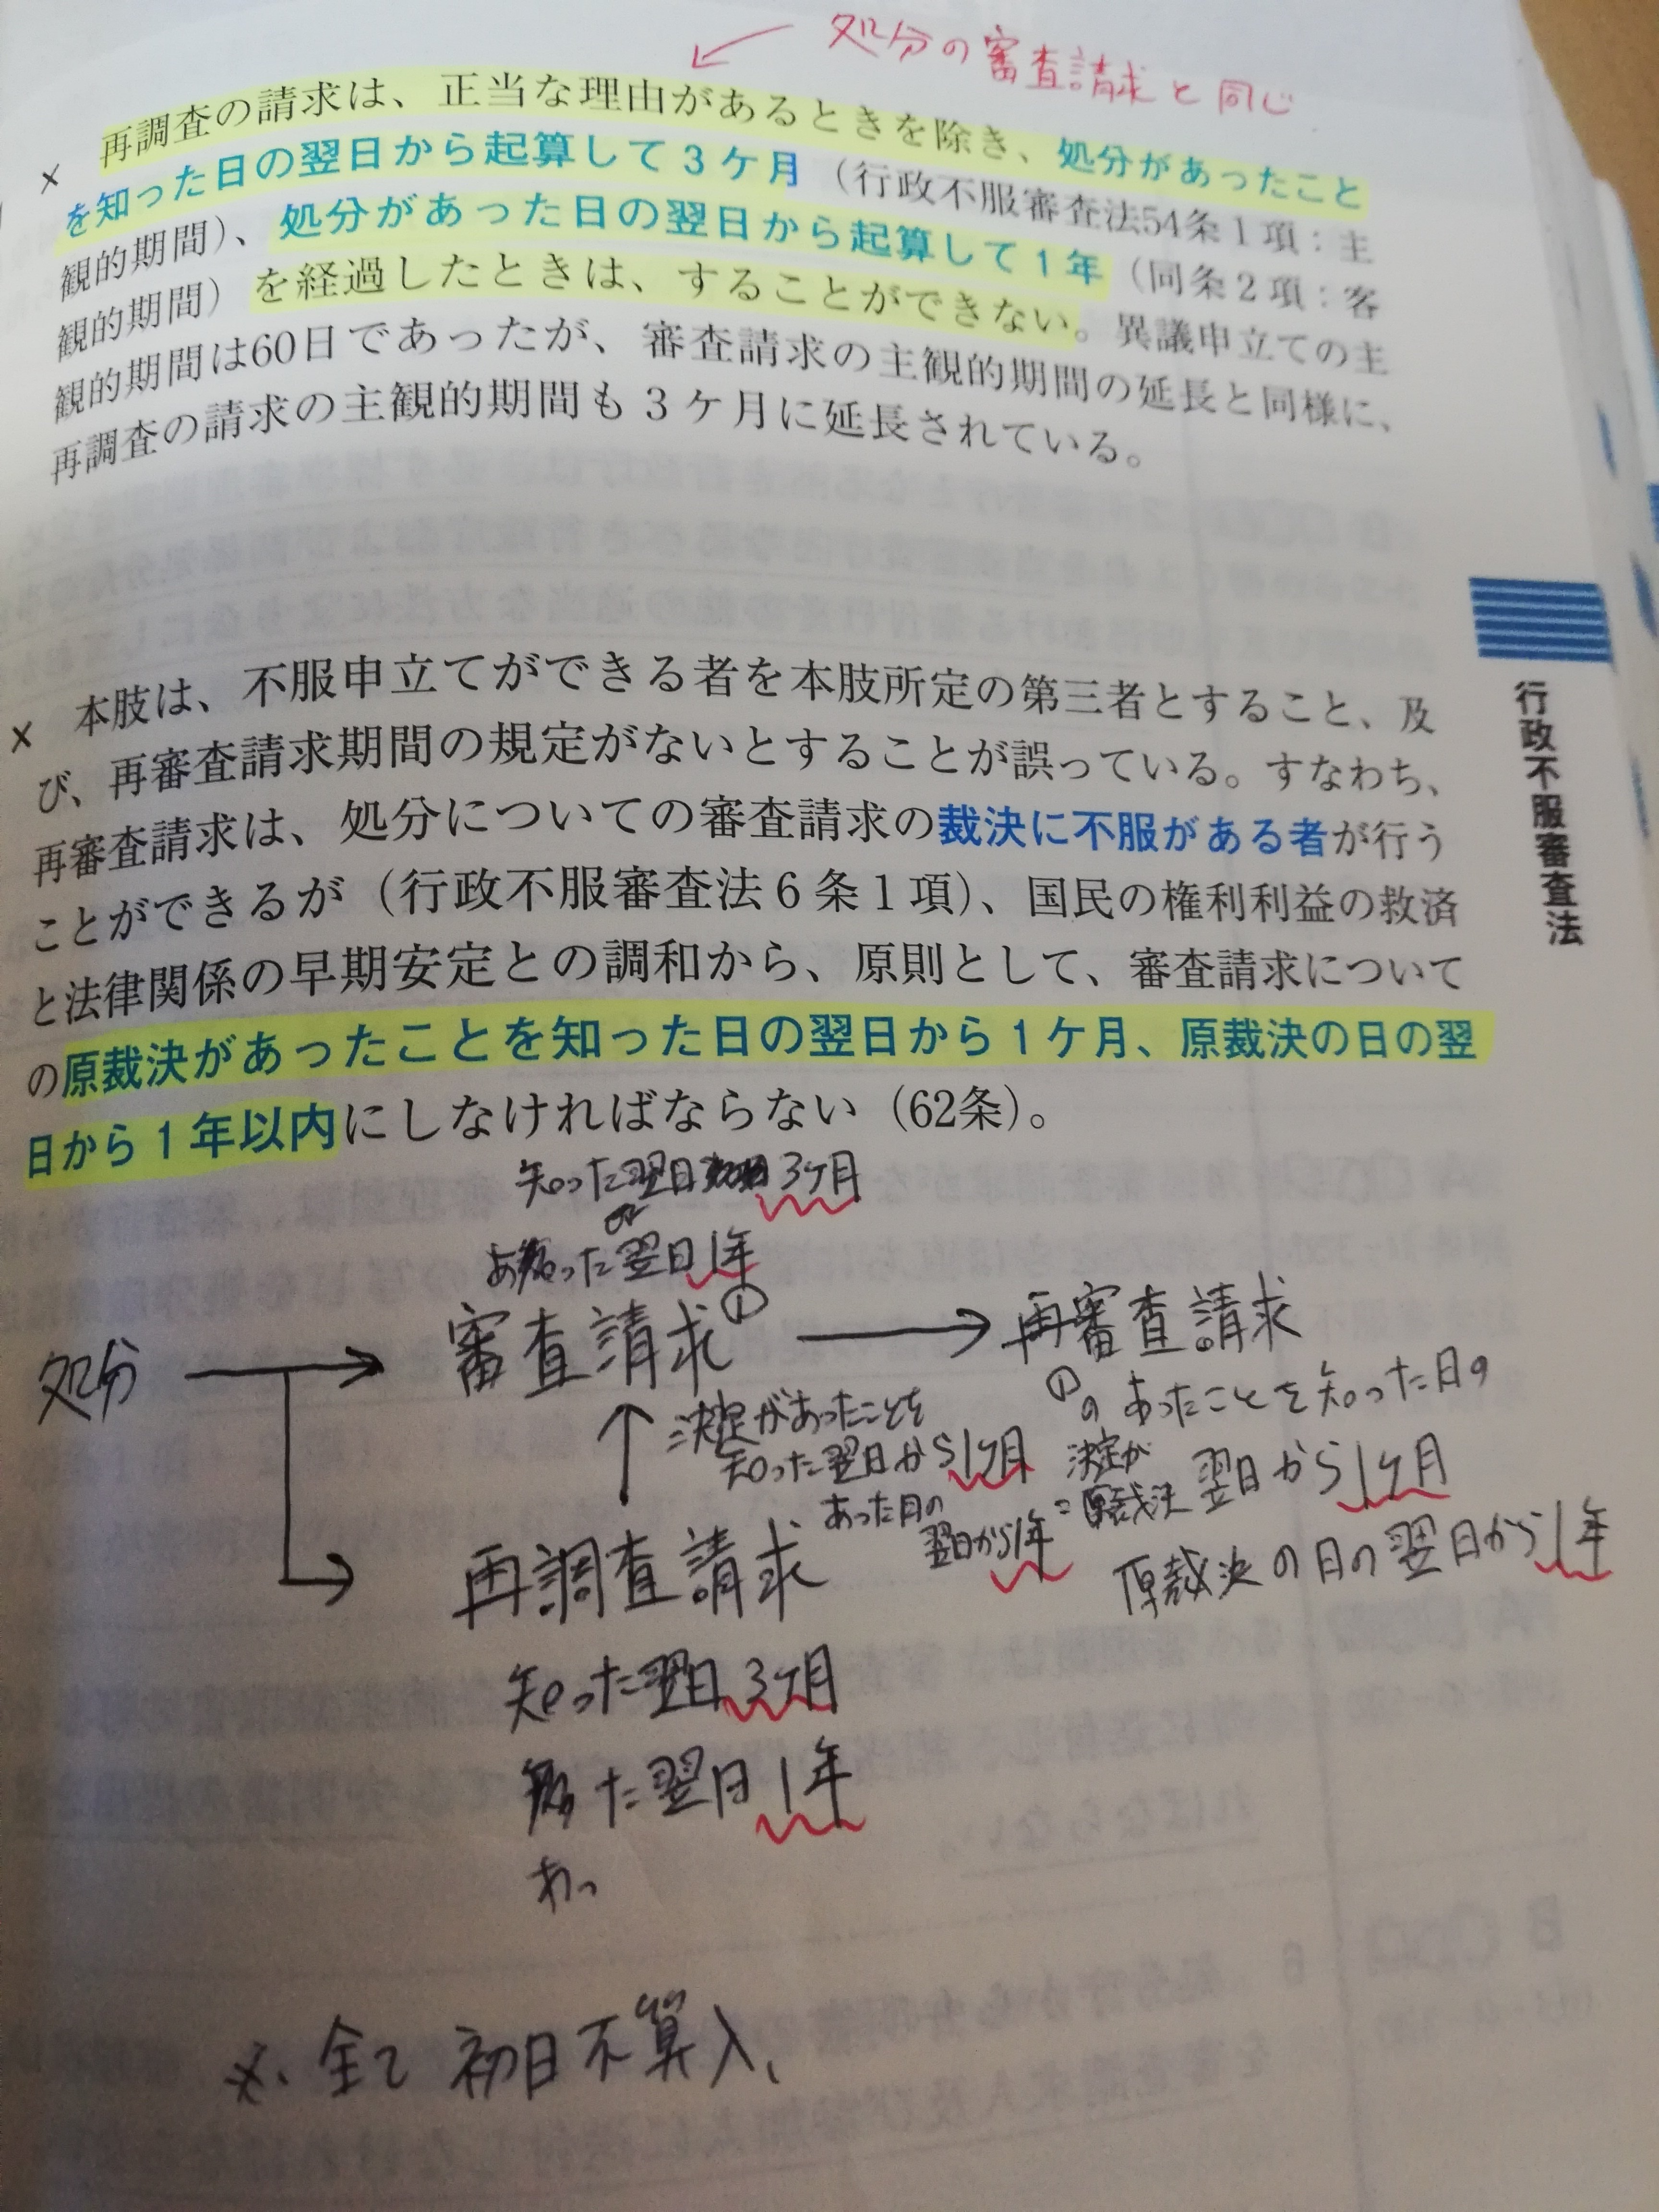 処分の審査請求と同じ
× 再調査の請求は、正当な理由があるときを除き、処分があったこと
を知った日の翌日から起算して3ケ月（行政不服審査法54条1項：主
観的期間）、処分があった日の翌日から起算して1年（同条2項：客
観的期間）を経過したときは、することができない。異議申立ての主
観的期間は60日であったが、審査請求の主観的期間の延長と同様に、
再調査の請求の主観的期間も3ケ月に延長されている。
× 本肢は、不服申立てができる者を本肢所定の第三者とすること、及
び、再審査請求期間の規定がないとすることが誤っている。すなわち、
再審査請求は、処分についての審査請求の裁決に不服がある者が行う
ことができるが（行政不服審査法6条1項）、国民の権利利益の救済
と法律関係の早期安定との調和から、原則として、審査請求について
の原裁決があったことを知った日の翌日から1ケ月、原裁決の日の翌
日から1年以内にしなければならない（62条）。
行政不服審査法
知った翌日 3ケ月
or
あった翌日1年
処分
審査請求①
再審査請求
決定があったことを
知った翌日から1ケ月
あった日の
翌日から1年
①のあったことを知った日の
決定が
=原裁決
翌日から1ケ月
原裁決の日の翌日から1年
再調査請求
知った翌日3ケ月
た翌日1年
あっ
※. 全て初日不算入、